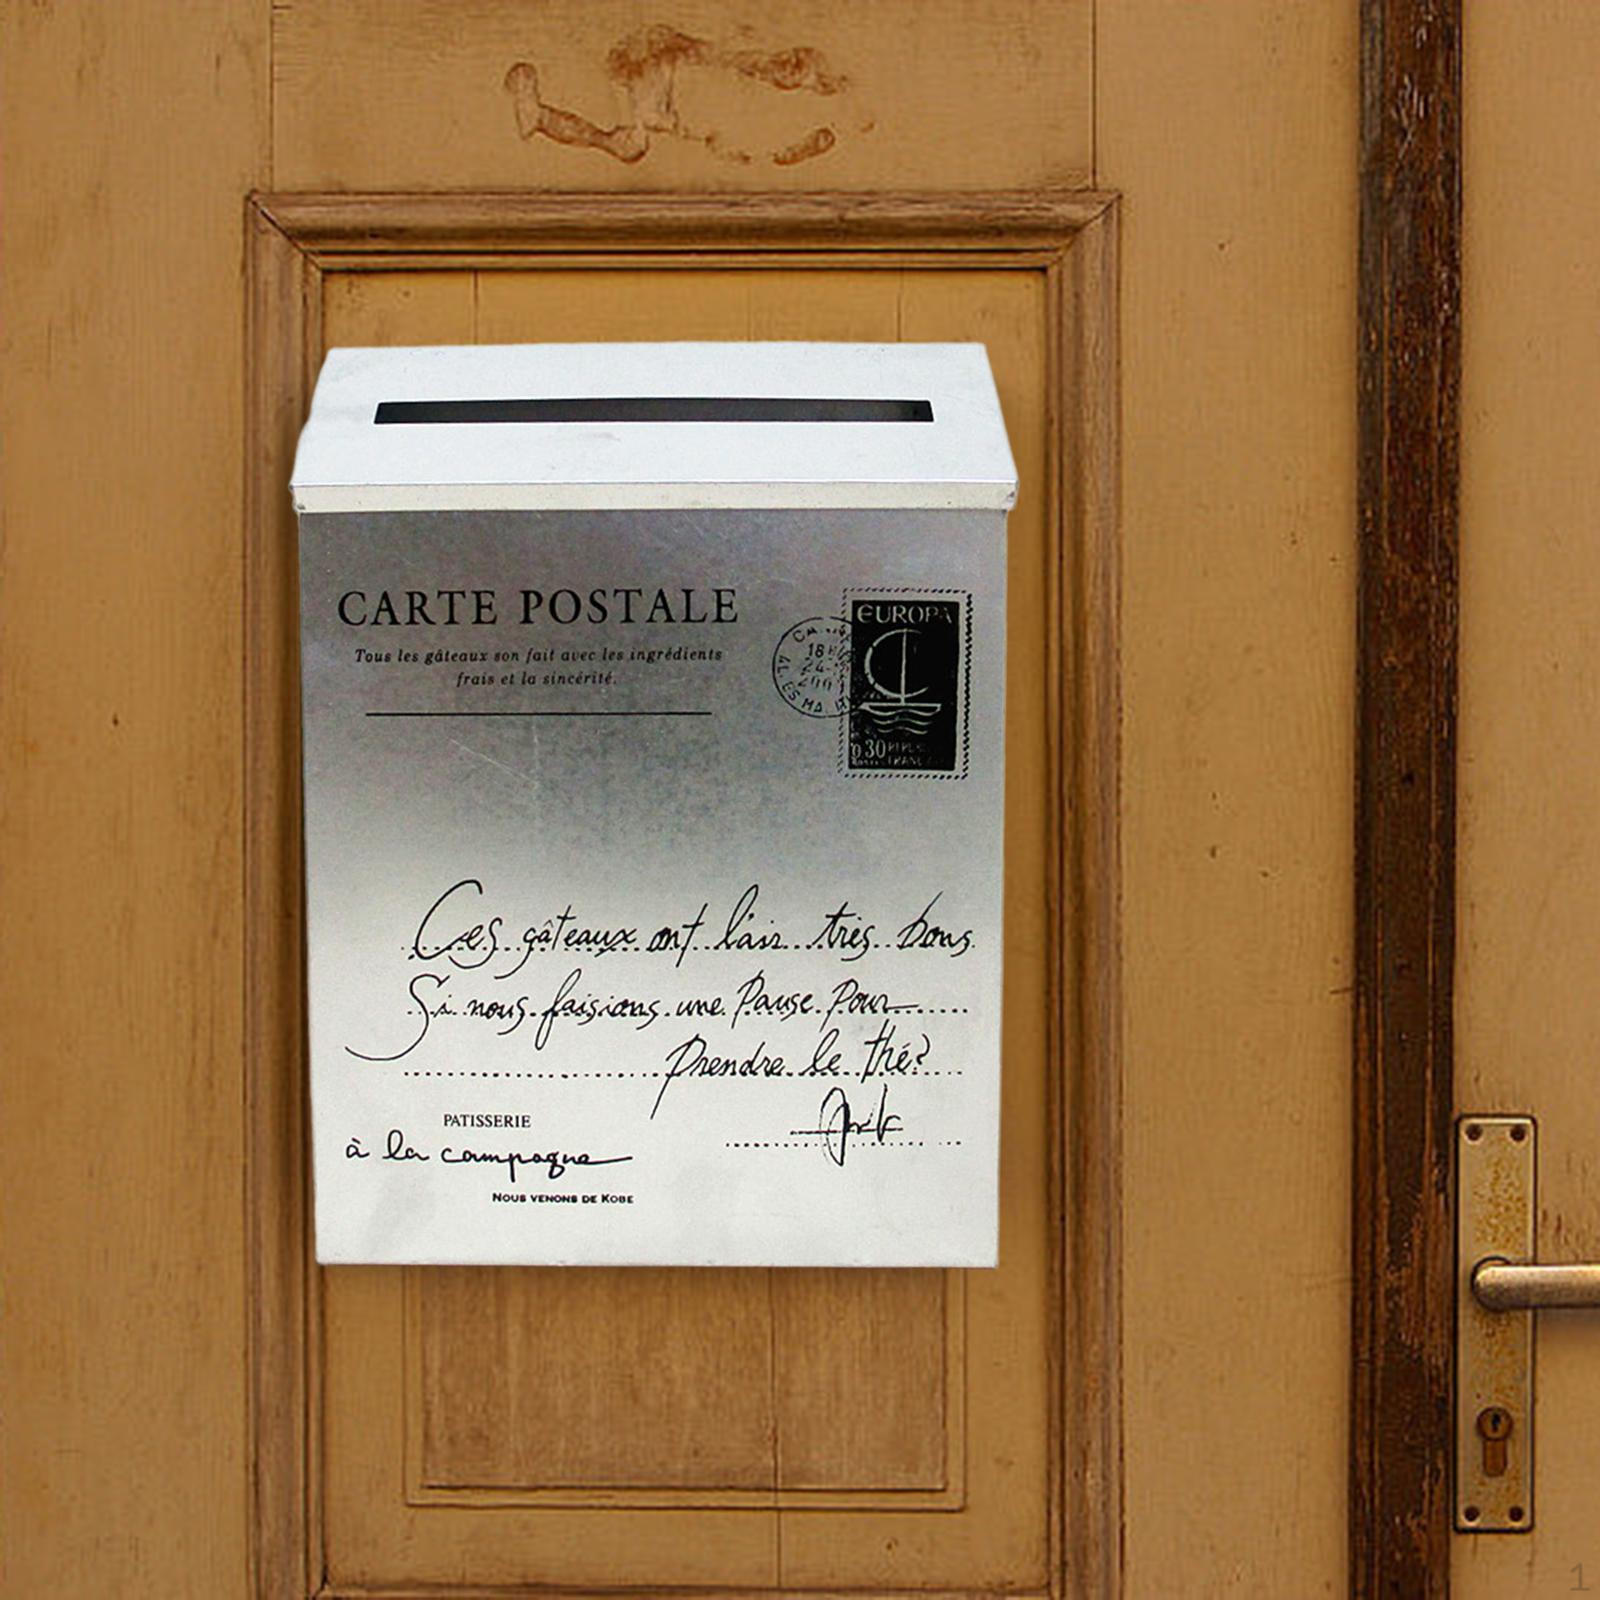 CARTE POSTALE
Tous les gâteaux son fait avec les ingrédients
frais et la sincérité.
EUROPA
18
0,30
Ces gâteaux ont l'air très bons.
Si nous faisions une Pause Pour
Prendre le thé?
PATISSERIE
à la campagne
NOUS VENONS DE KOBE
1